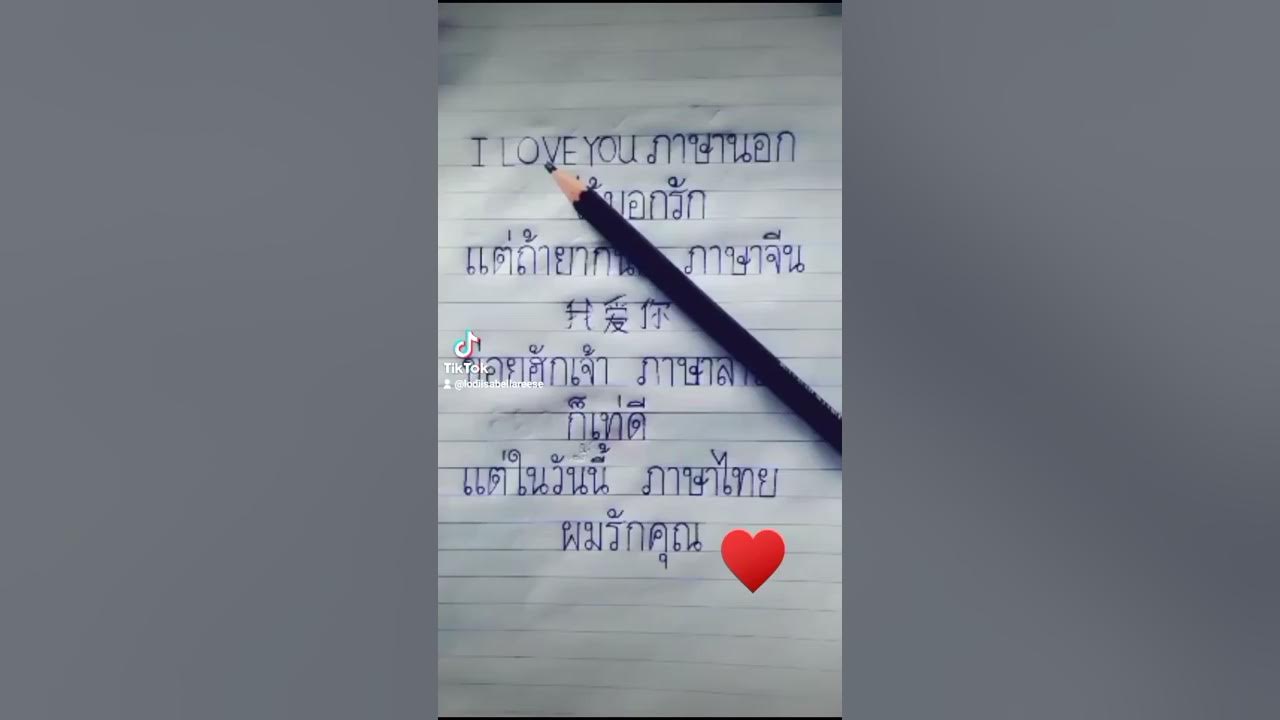 I LOVE YOU ภาษานอก
บอกรัก
แต่ถ้ายาก ภาษาจีน
我爱你
ข่อยฮักเจ้า ภาษาลาว
ก็เท่ดี
แต่ในวันนี้ ภาษาไทย
ผมรักคุณ
TikTok
@lodiisabellareese